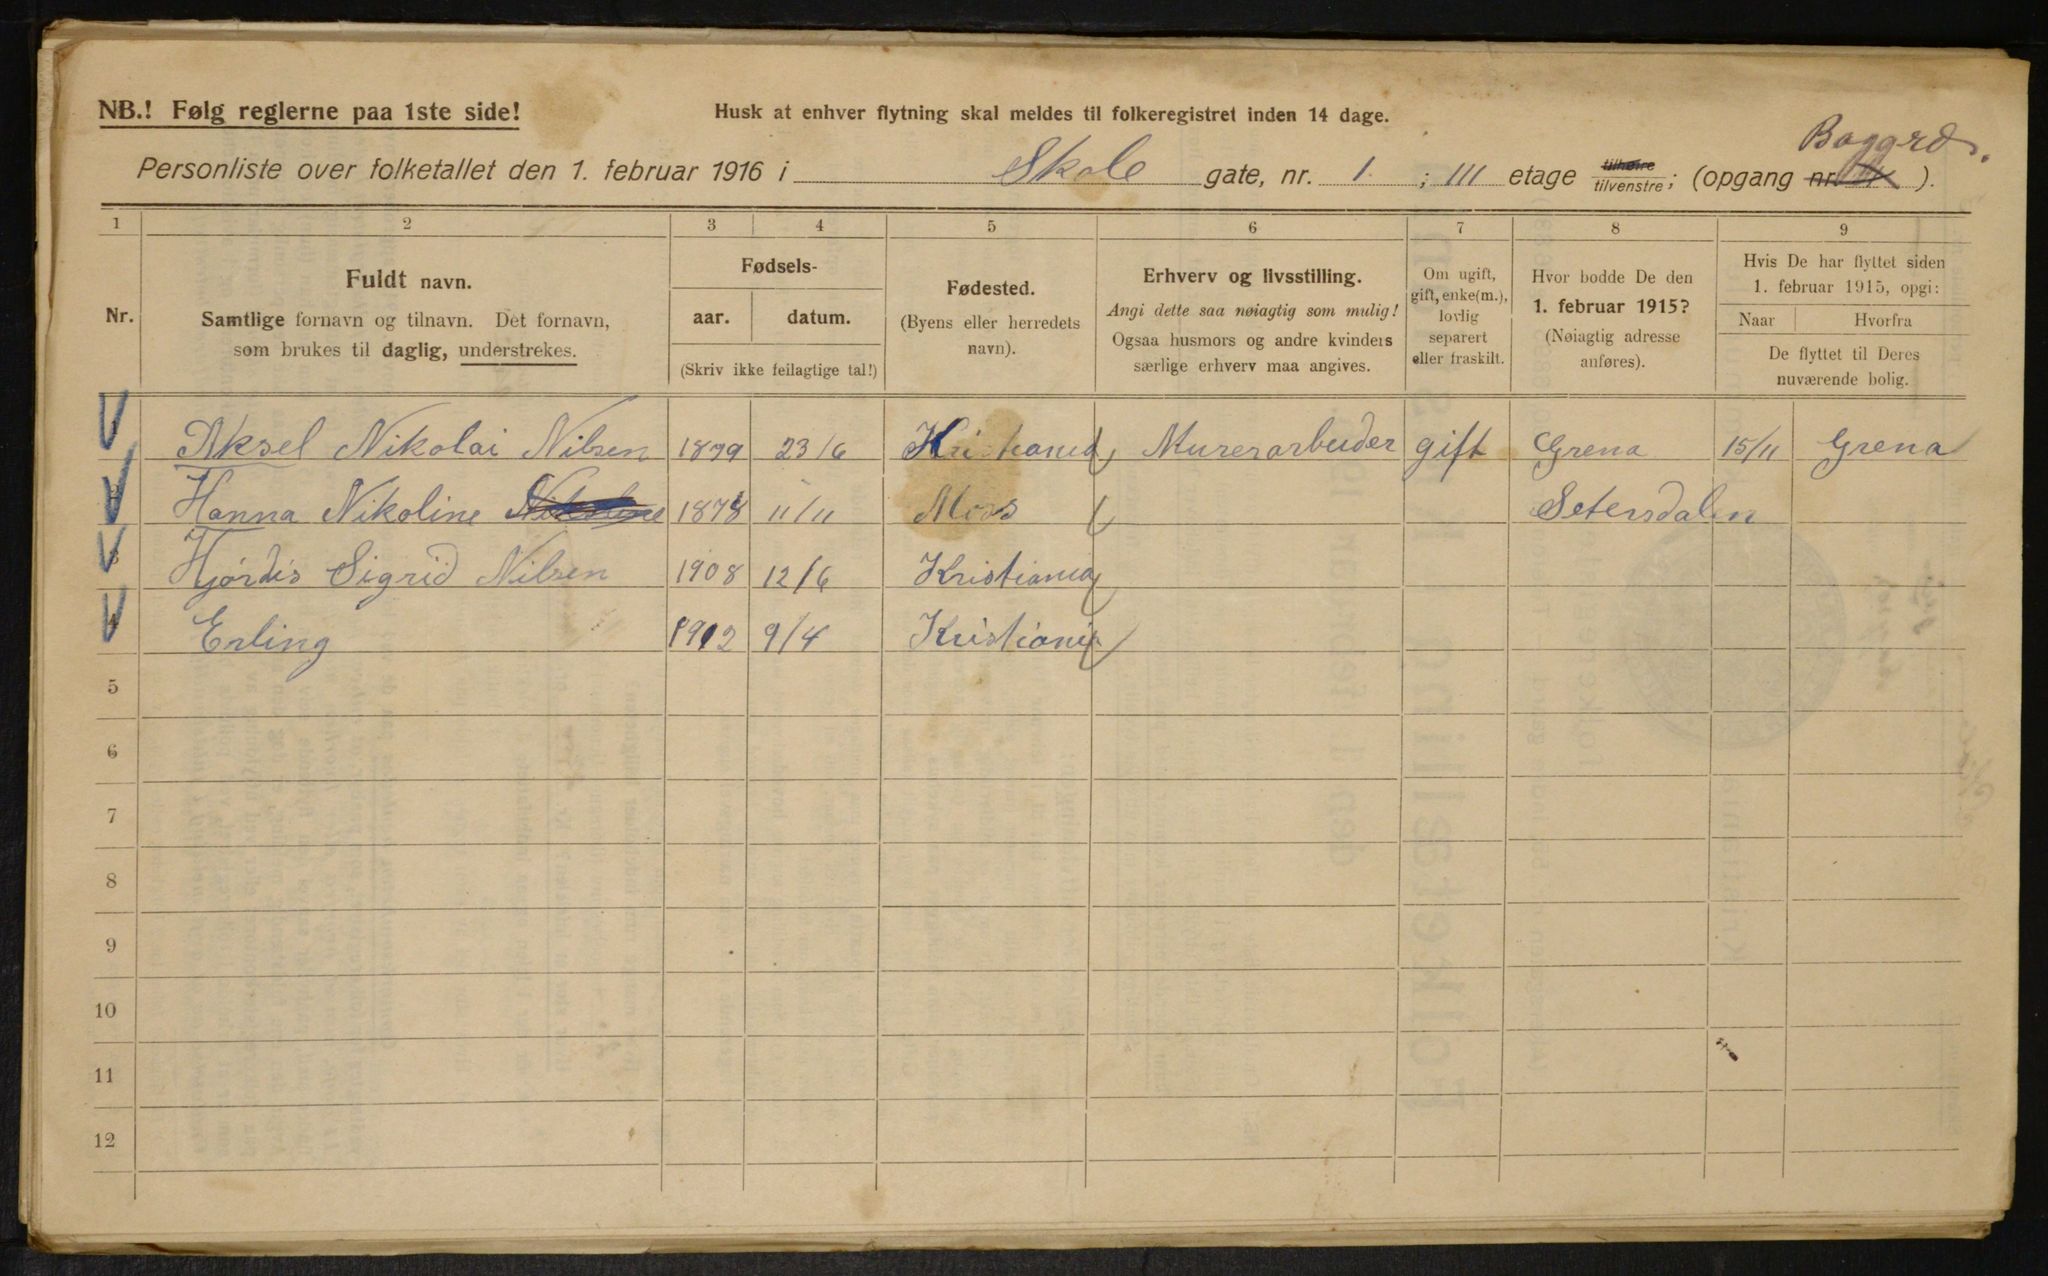 NB.! Følg reglerne paa 1ste side!
Husk at enhver flytning skal meldes til folkeregistret inden 14 dage.
Baggrd.
Personliste over folketallet den 1. februar 1916 i Skole gate, nr. 1 ; III etage tilhøire tilvenstre; (opgang nr. ).
1 2 3 4 5 6 7 8 9
Nr.
Fuldt navn.
Samtlige fornavn og tilnavn. Det fornavn,
som brukes til daglig, understrekes.
Fødsels-
aar. datum.
(Skriv ikke feilagtige tal!)
Fødested.
(Byens eller herredets
navn).
Erhverv og livsstilling.
Angi dette saa nøiagtig som mulig!
Ogsaa husmors og andre kvinders
særlige erhverv maa angives.
Om ugift,
gift, enke(m.),
lovlig
separert
eller fraskilt.
Hvor bodde De den
1. februar 1915?
(Nøiagtig adresse
anføres).
Hvis De har flyttet siden
1. februar 1915, opgi:
Naar Hvorfra
De flyttet til Deres
nuværende bolig.
Aksel Nikolai Nilsen 1879 23/6 Kristiania Murerarbeider gift Grena 15/11 Grena
2 Hanna Nikoline Nikoline 1878 11/11 Moss Setersdalen
3 Hjørdis Sigrid Nilsen 1908 12/6 Kristiania
4 Erling 1912 9/4 Kristiania
5
6
7
8
9
10
11
12